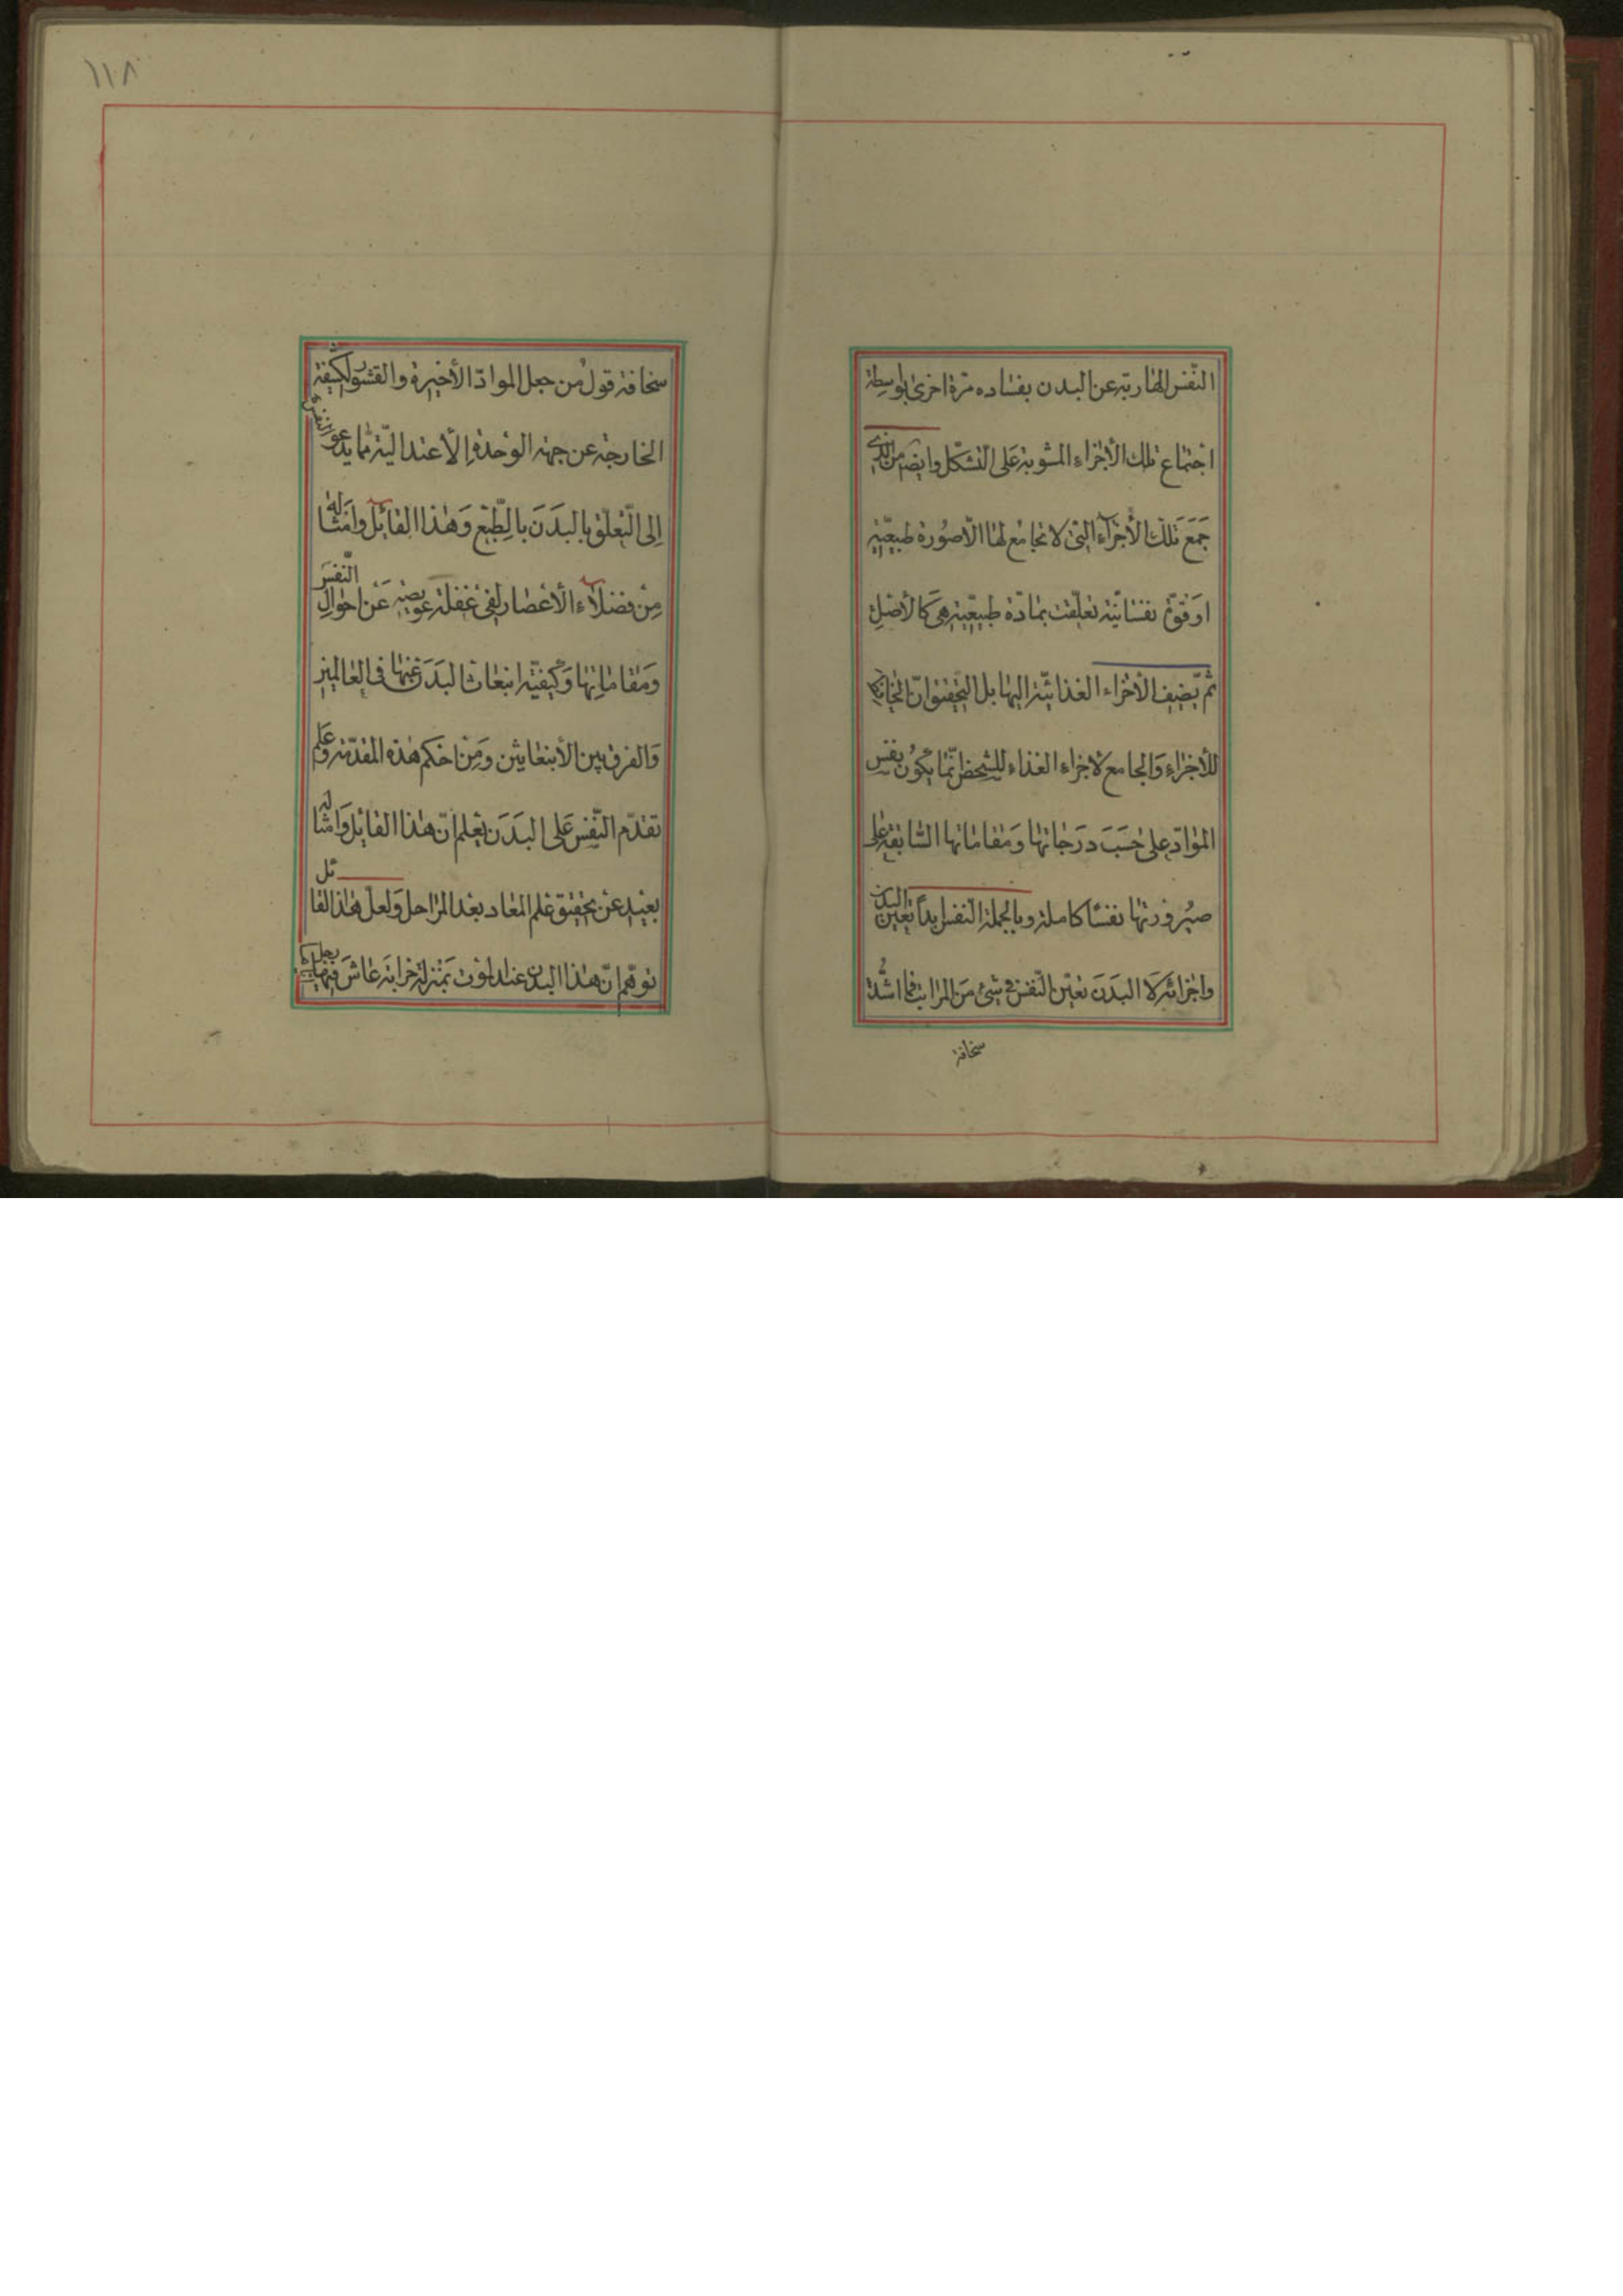 النّفس الهاربة عن البدن بفساده مرّة اخرى بواسطة
اجتماع تلك الأجزاء المشوبة على التشكّل وايضا من الذي
جَمَعَ تلك الأجزاء التى لا تجامع لها الّا صُورة طبيعيّة
او قوّة نفسانيّة تعلّقت بمادّة طبيعيّة هى كالأصل
ثمّ يضيف الأجزاء الغذائيّة اليها بل التحقيق انّ
للأجزاء وَالجامع لاجزاء الغذاء للشخص انّما يكون نفس
الموادّ على حَسَبَ دَرَجاتها وَمقاماتها السّابقة على
صيرورتها نفسًا كاملة وبالجملة النفس ابداً تعين البدن
واجزائه لا البدَنَ تعيّن النّفس فى شئ من المراتب فما اشدّ
سخافة
١١٨
سخافة قول من جعل الموادّ الأخيرة والقشور الكثيفة
الخارجة عن جهة الوَحدة والأعتداليّة ممّا يدعو النفس
إلى التّعلّق بالبدَنَ بالطّبع وَهذا القائل وامثاله
مِن فضلاء الأعصار لفى غفلة عويصة عَن احوال النّفس
وَمَقاماتِها وَكيفيّة انبعاث البَدَن عنها فى العالمين
وَالفرق بين الأنبعاثين وَمِن احكم هذه المقدّمة وَعلم
تقدّم النّفس عَلى البَدَن يعلم انّ هذا القائل وَامثاله
بعيد عن تحقيق علم المعاد بعد المراحل وَلعلّ هذا القائل
توهّم انّ هذا البدن عند الموت بمنزلة خرابَة عاشَ فيها